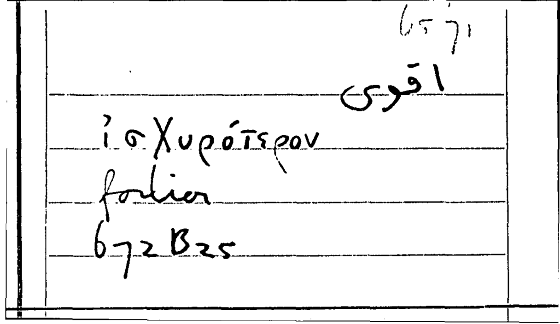 اقوى
ἰσχυρότερον
fortior
672 B 25